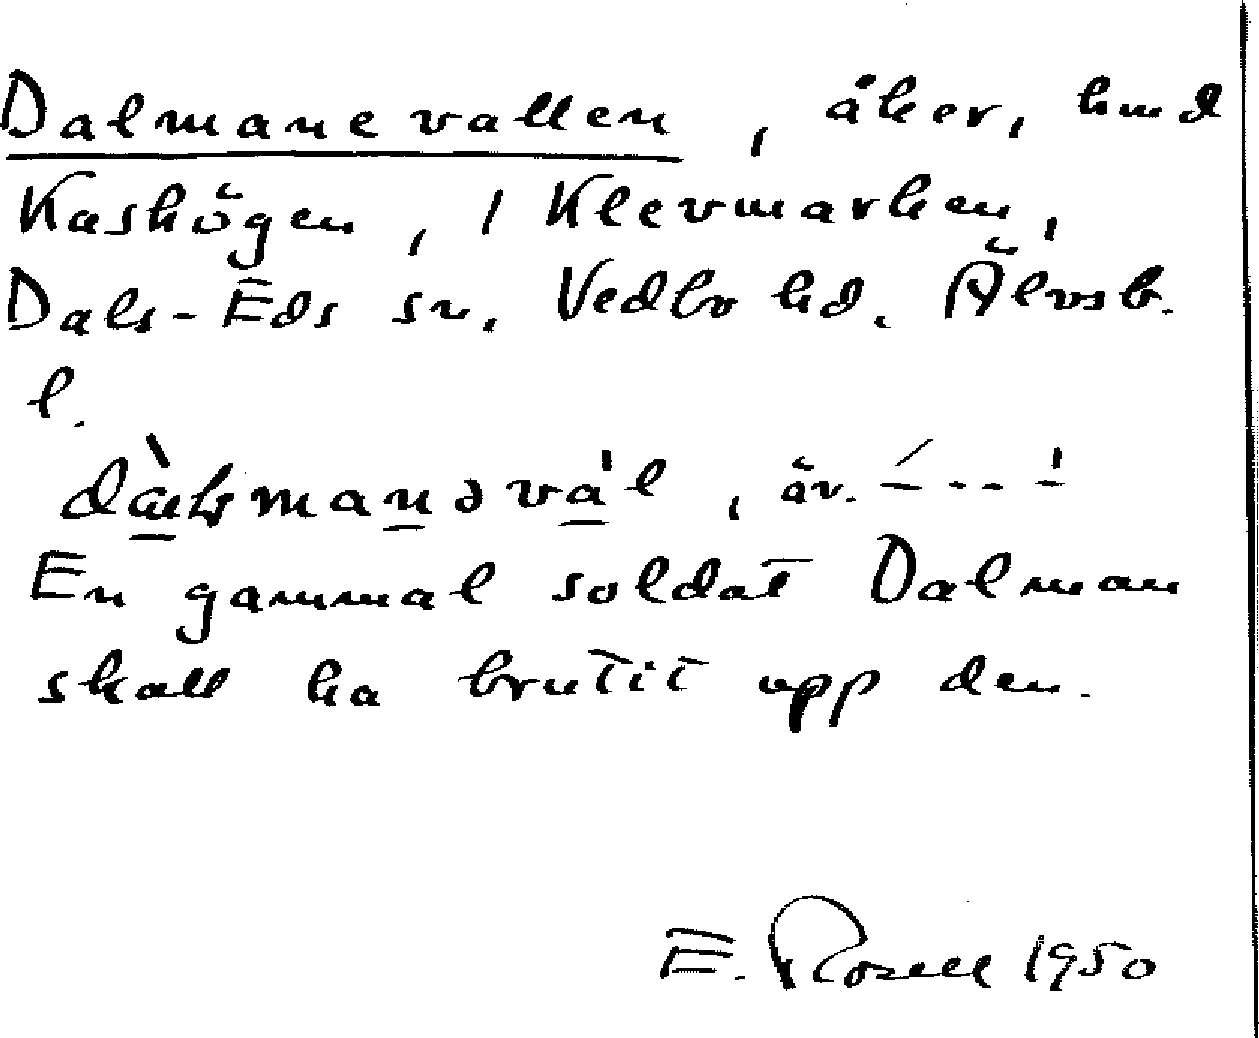 Dalmanevallen, åker, hmd
Kashögen, / Klevmarken,
Dals-Eds sn. Vedbo hd. Älvsb.
l.
av.
En gammal soldat Dalman
skall ha brutit upp den.
E. Rosell 1950